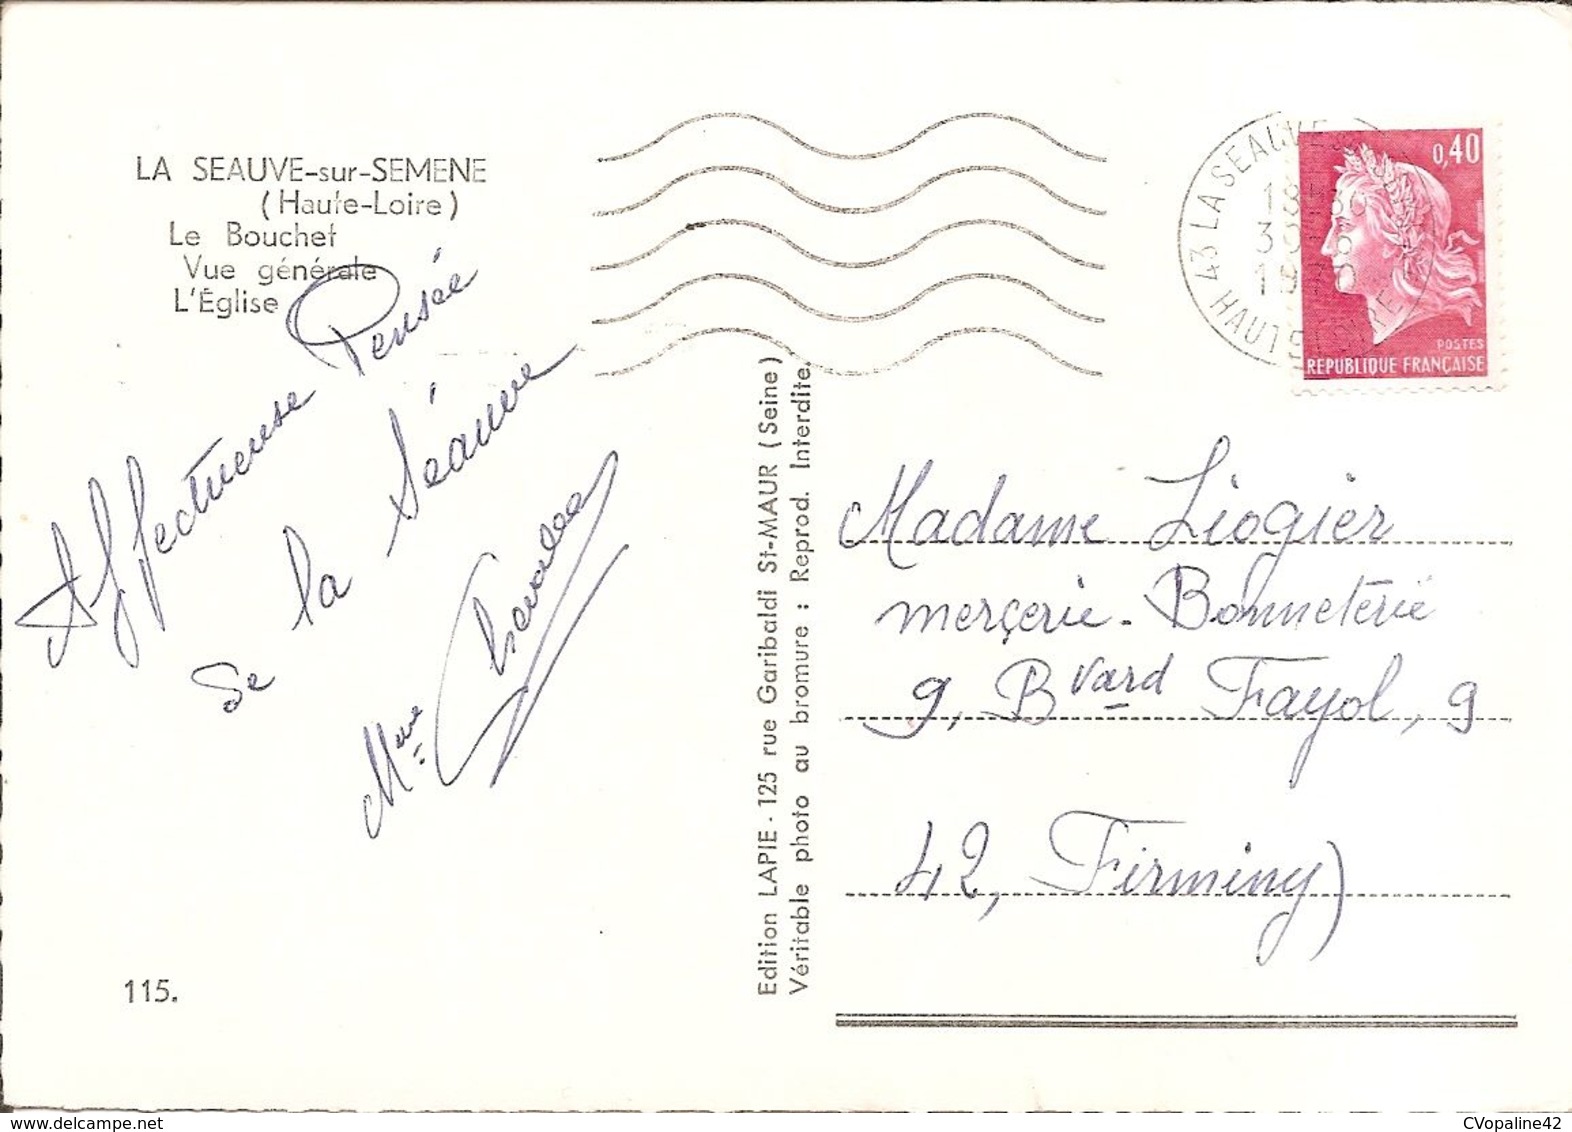 LA SEAUVE-sur-SEMENE
(Haute-Loire)
Le Bouchet
Vue générale
L'Église
Affectueuse Pensée
de la Séauve
Mme
115.
Edition LAPIE - 125 rue Garibaldi St-MAUR (Seine)
Véritable photo au bromure : Reprod. Interdite.
43 LA SEAUVE S. SEMENE
1970
HAUTE LOIRE
0,40
POSTES
REPUBLIQUE FRANÇAISE
Madame Liogier
merçerie - Bonneterie
9, Bvard Fayol, 9
42, Firminy)
CVopaline42